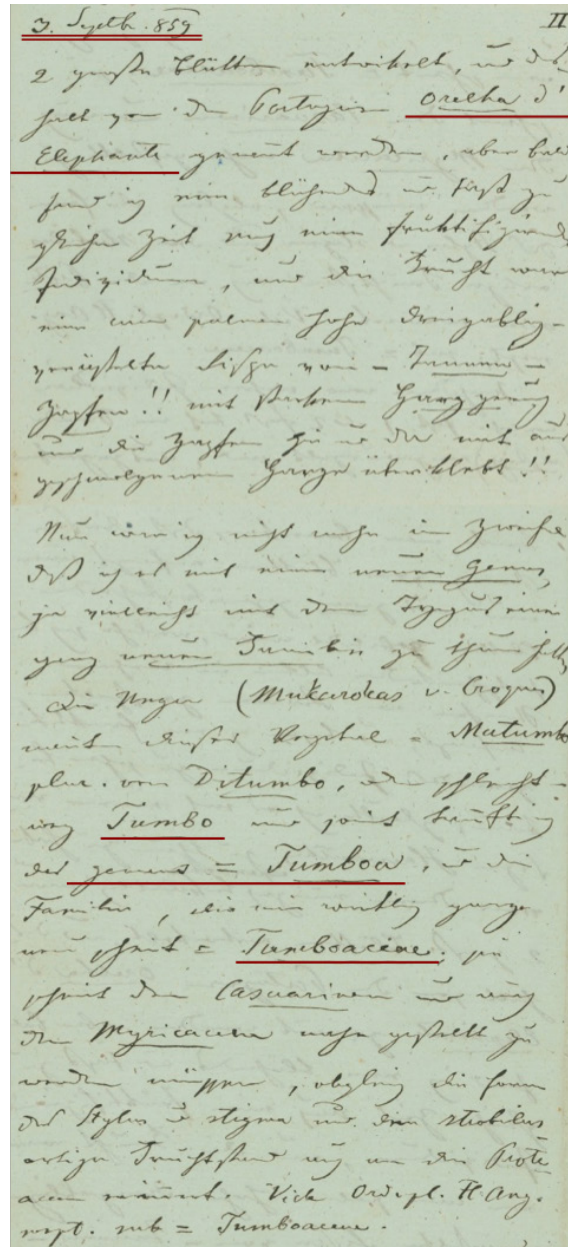 3. Septbr. 859 II
2 große Blätter entwikelt, und des
halb von den Portugiesen Orelha d'
Elephante genent werden, aber bald
fand ich ein blühendes u fast zu
gleicher Zeit auch einen fruktifizirendes
Individuum, und die Frucht war
eine palmen hohe dreigablig-
verästelte Rispe von = Tannen =
Zapfen!! mit starkem Harzgeruch
und die Zapfen hie u da mit aus
geschwolzenem Harze überklebt!!
Nun war ich nicht mehr im Zweifel
daß ich es mit einem neuen Genus,
ja vielleicht mit dem Typus einer
ganz neuen Familie zu thun hatte
Die Neger (Mukarokas v. Croques)
dieses = Matumbo
plur. von Ditumbo, oder schlecht-
weg Tumbo und somit taufte ich
das genus = Tumboa, u die
Familie, die mir wirklich ganz
neu scheint = Tumboaceae; sie
scheint den Casuarineen und auch
den Myricaceen nahe gestellt zu
werden müssen, obgleich die Form
des Stylus u stigma und dem strobilus
artigen Fruchtstand auch an die Prote
aceen erinnert. Vide Ord. pl. Fl. Ang.
rept. sub = Tumboaceae.